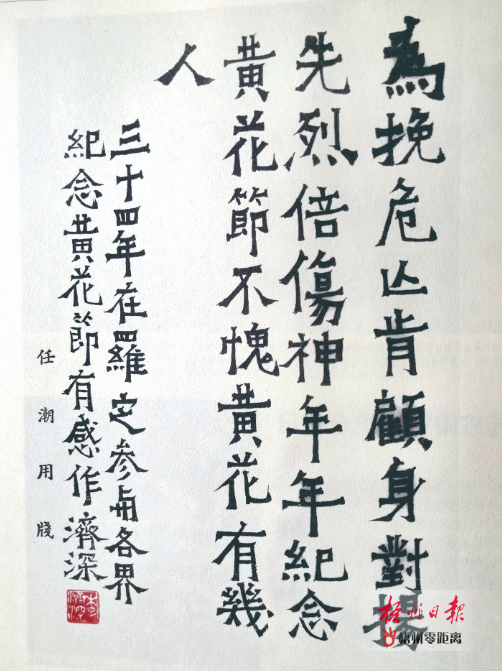 為挽危亾肯顧身對揚
先烈倍傷神年年紀念
黄花節不愧黄花有幾
人
三十四年在羅定参与各界
紀念黄花節有感作濟深
任潮用牋
梧州日報
梧州零距离